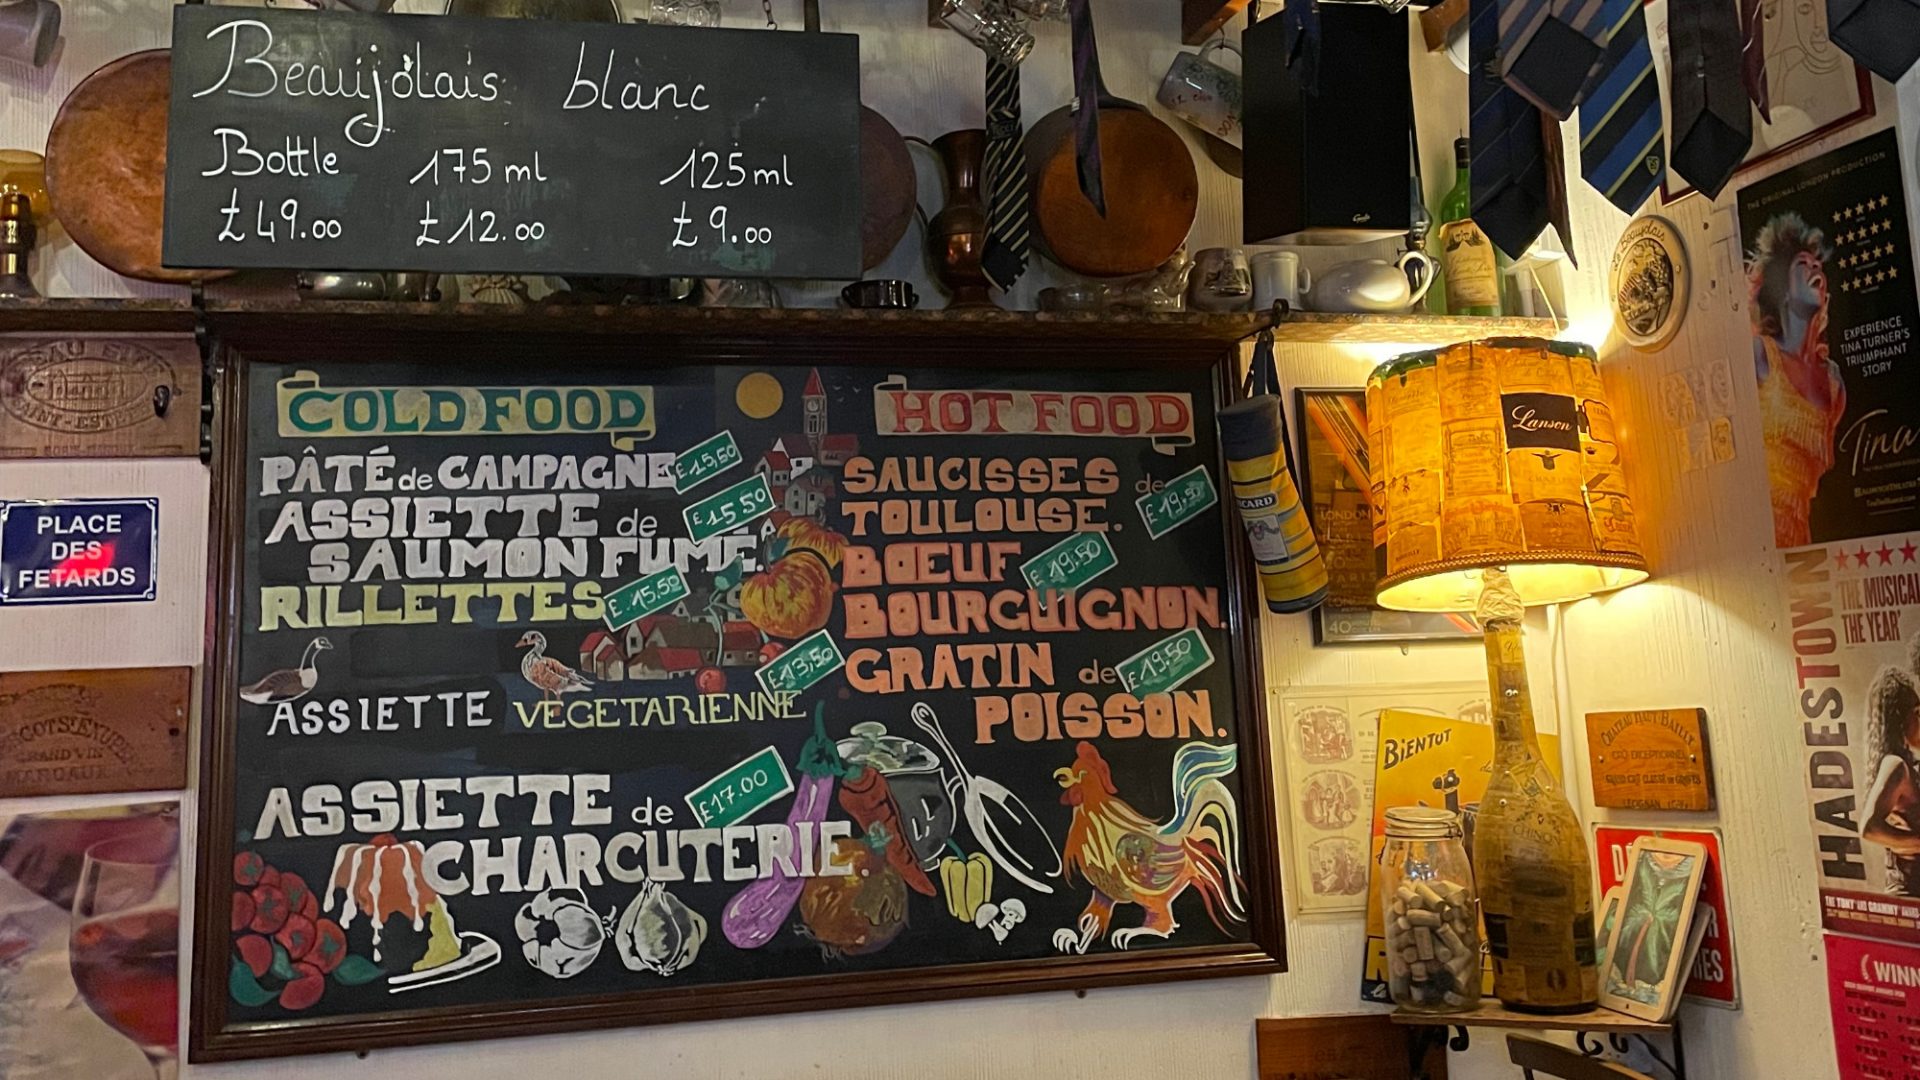 Beaujolais blanc
Bottle 175 ml 125 ml
£49.00 £12.00 £9.00
COLD FOOD
PÂTÉ de CAMPAGNE £15,50
ASSIETTE de £15 50
SAUMON FUMÉ.
RILLETTES £15.50
£13,50
ASSIETTE VEGETARIENNE
ASSIETTE de £17.00
CHARCUTERIE.
HOT FOOD
SAUCISSES de
TOULOUSE. £19,50
BŒUF £19.50
BOURGUIGNON.
GRATIN de £19.50
POISSON.
PLACE
DES
FETARDS
MARGAUX
Lanson
CHINON
BIENTOT
LONDON
40
Le Beaujolais
CHATEAU HAUT-BAILLY
THE ORIGINAL LONDON PRODUCTION
EXPERIENCE
TINA TURNER'S
TRIUMPHANT
STORY
Tina
HADESTOWN
'THE MUSICAL
THE YEAR'
WINN